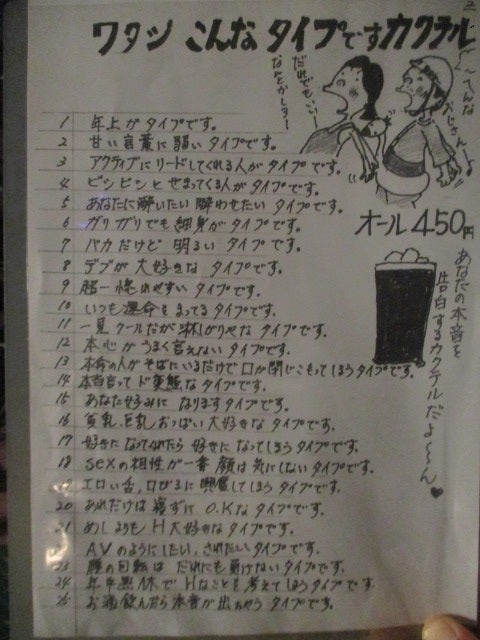 ワタシ こんな タイプです カクテル
だれでもいい
なんとかしてョー
オール 450円
あなたの本音を
告白するカクテルだよ〜ん♥
1 年上が タイプです。
2 甘い言葉に 弱い タイプです。
3 アクティブに リードしてくれる人が タイプ です。
4 ビンビンと せまってくる人が タイプです。
5 あなたに酔いたい 酔わせたい タイプです。
6 ガリガリでも 細身が タイプです。
7 バカだけど 明るい タイプです。
8 デブが 大好きな タイプです。
9 超一惚れやすい タイプです。
10 いつも 運命を まってる タイプです。
11 一見 クールだが 淋しがりやな タイプです。
12 本心が うまく言えない タイプです。
13 本命の人が そばにいるだけで 口が閉じこもってしまう タイプです。
14 本音言って ド変態な タイプです。
15 あなた好みに なります タイプです。
16 貧乳、巨乳 おっぱい 大好きな タイプです。
17 好きに なってくれたら 好きに なってしまう タイプです。
18 sexの相性が 一番 顔は 気にしない タイプです。
19 エロい舌、口びるに 興奮してしまう タイプです。
20 あれだけは 寝ずに O.Kな タイプです。
21 めしよりも H大好きな タイプです。
AVのようにしたい、されたい タイプです。
23 腰の回転は だれにも 負けない タイプです。
24 年中無休で Hなことを 考えてしまう タイプです
25 お酒飲んだら 本音が 出ちゃう タイプです。